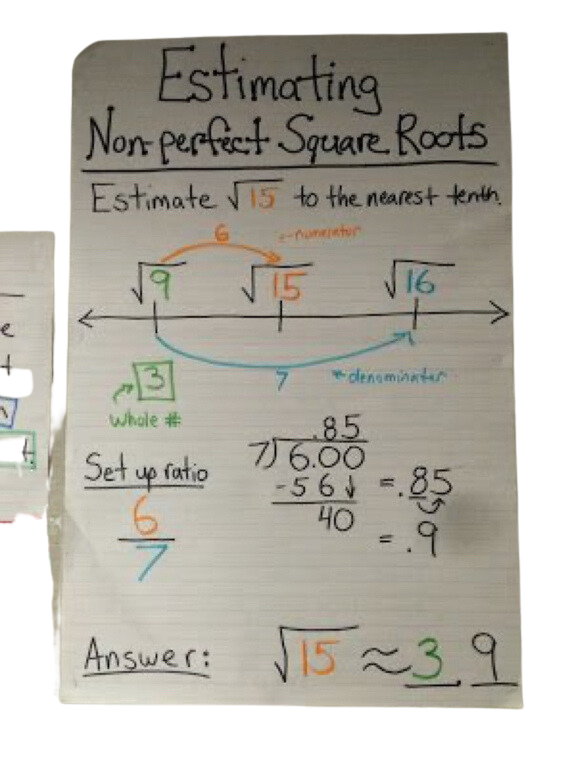 Estimating
Non-perfect Square Roots
Estimate √15 to the nearest tenth.
6 ←numerator
√9 √15 √16
3
7 ←denominator
Whole #
.85
Set up ratio
7)6.00
-56↓ = .85
6
40
7
= .9
Answer: √15 ≈ 3.9
e
t
n
t.